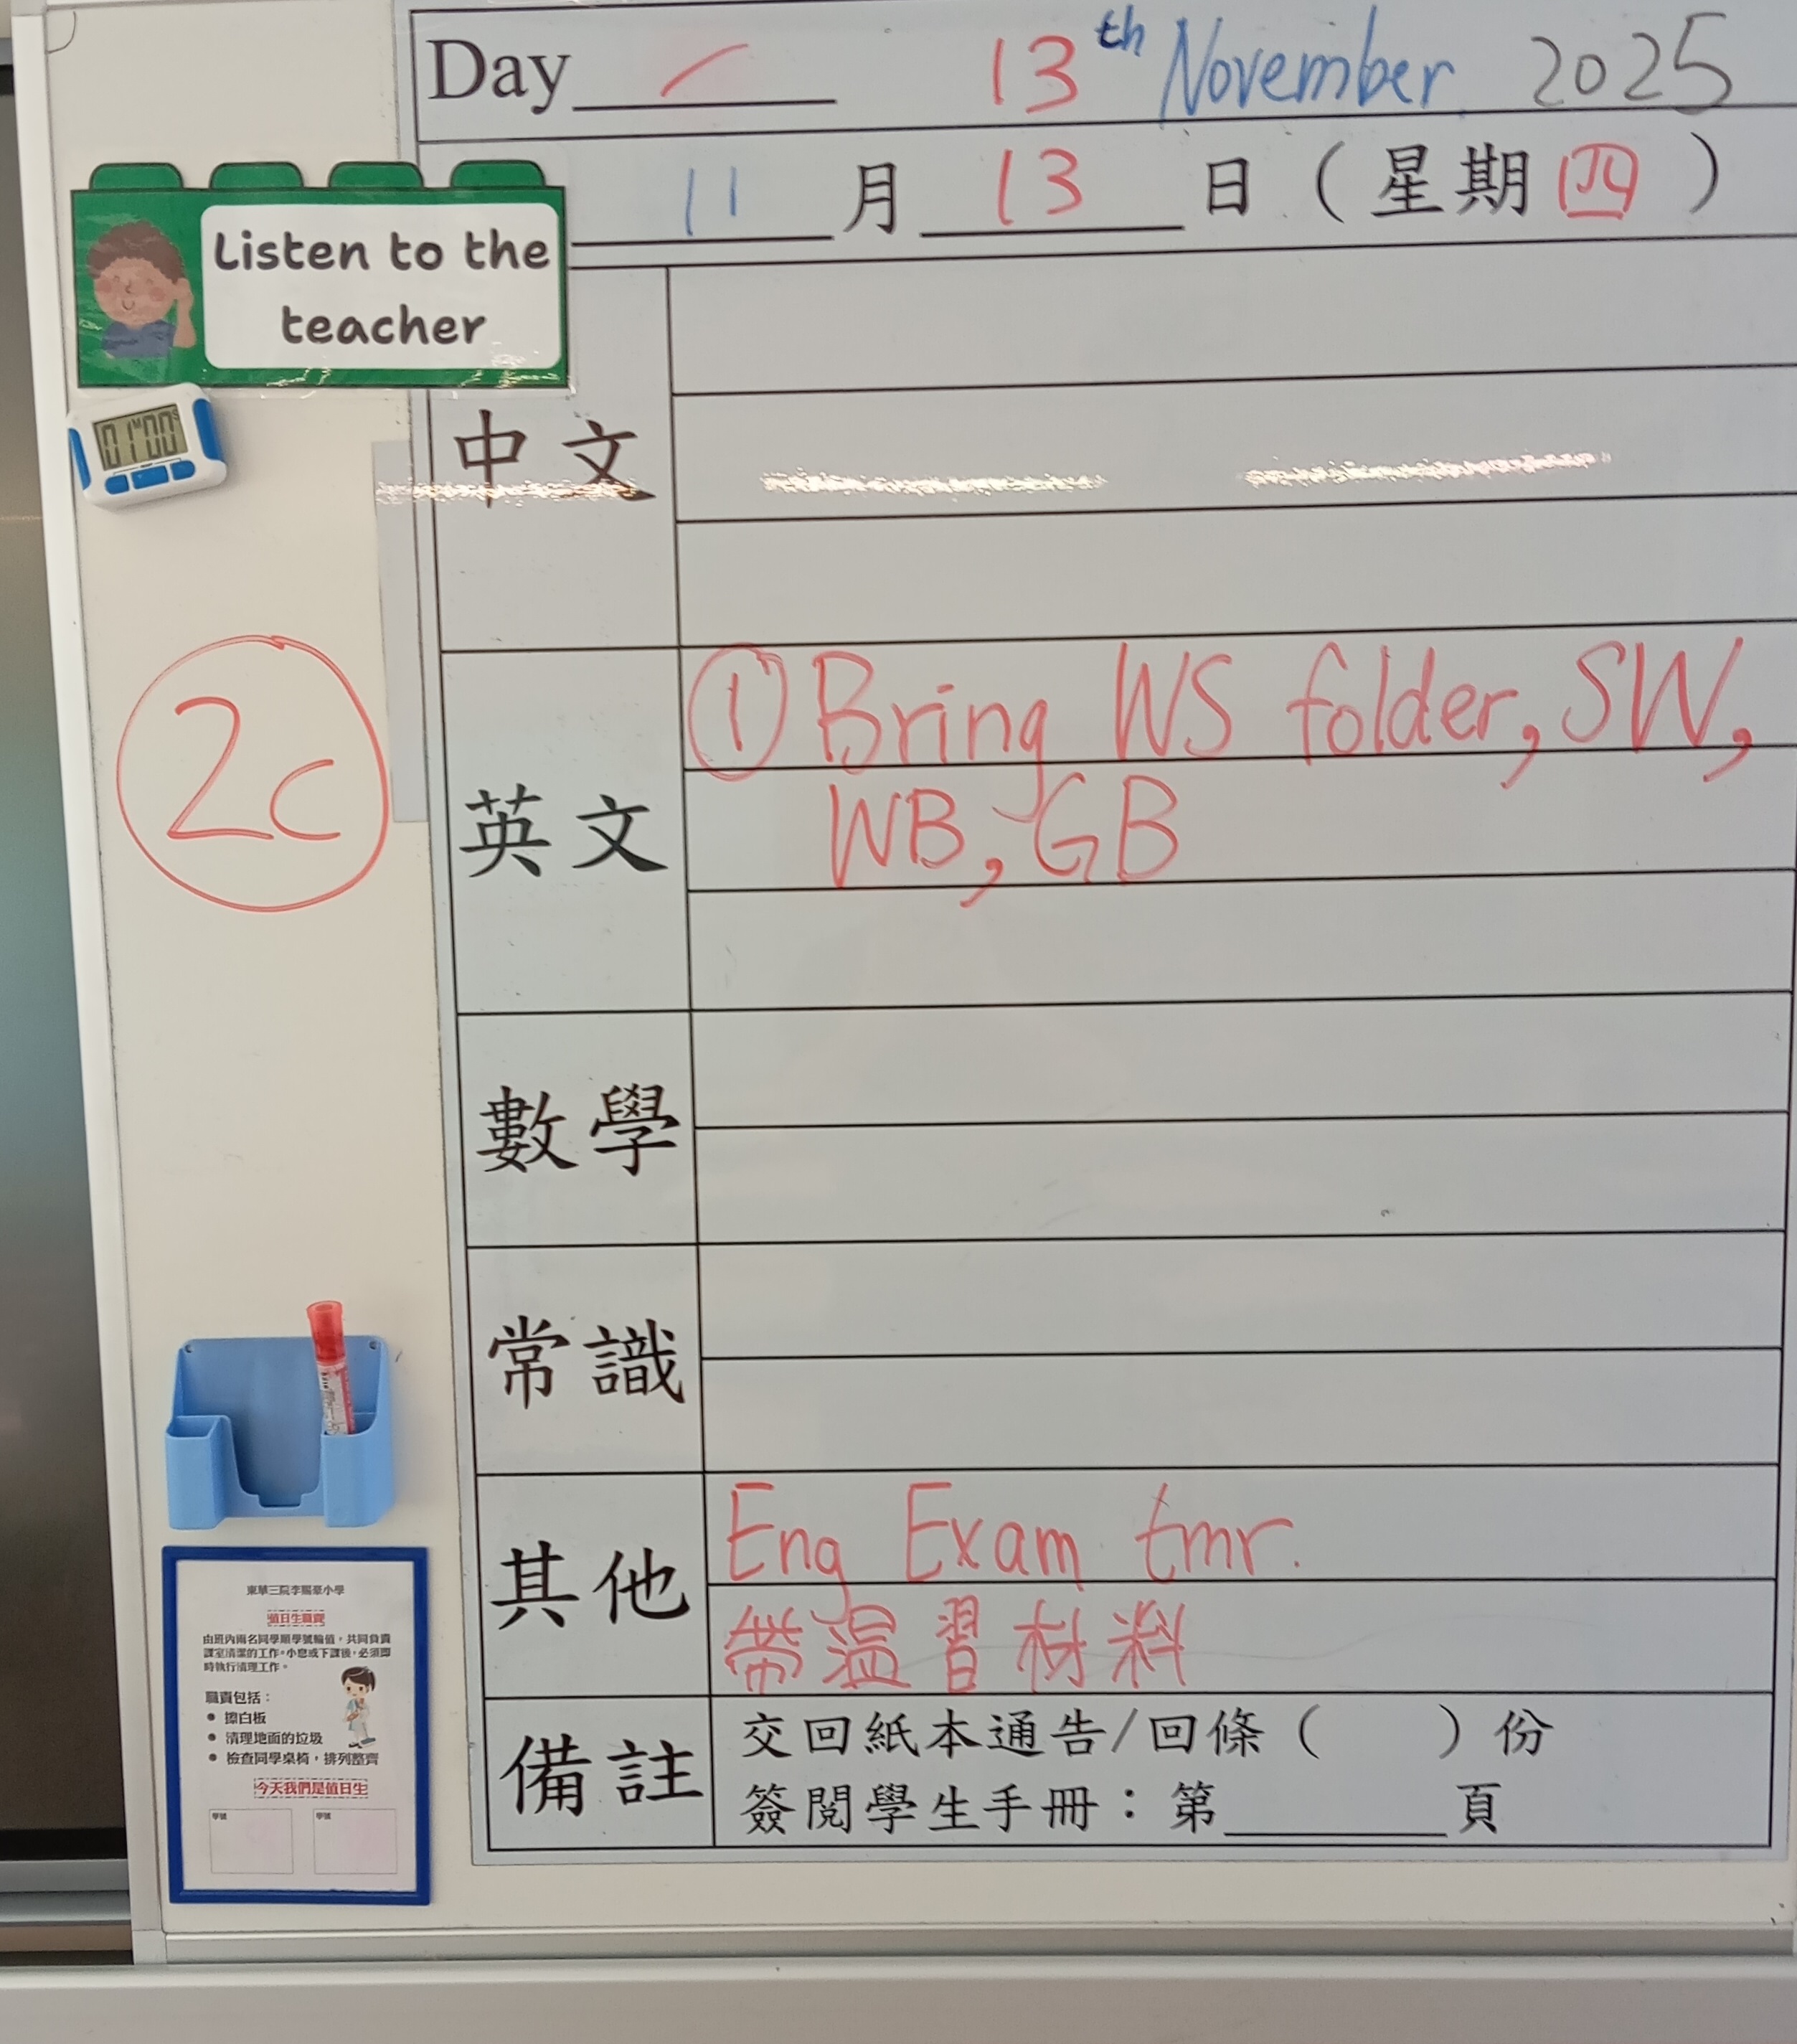 Day 13th November 2025
11月13日（星期四）
Listen to the
teacher
01M00S
中文
2C
英文
① Bring WS folder, SW,
WB, GB
數學
常識
其他
Eng Exam tmr.
帶溫習材料
備註
交回紙本通告/回條（ ）份
簽閱學生手冊：第______頁
東華三院李賜豪小學
值日生職責
由班內兩名同學順學號輪值，共同負責
課室清潔的工作。小息或下課後，必須即
時執行清理工作。
職責包括：
● 擦白板
● 清理地面的垃圾
● 檢查同學桌椅，排列整齊
今天我們是值日生
學號 學號